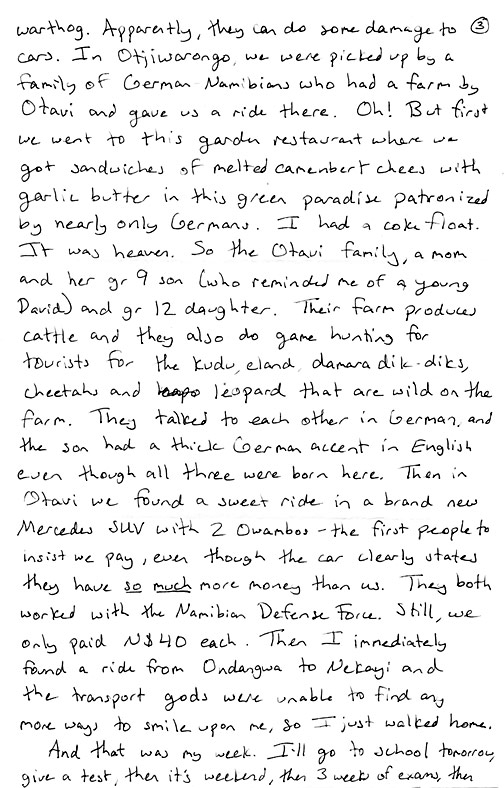 warthog. Apparently, they can do some damage to ③
cars. In Otjiwarongo, we were picked up by a
family of German Namibians who had a farm by
Otavi and gave us a ride there. Oh! But first
we went to this garden restaurant where we
got sandwiches of melted camenbert chees with
garlic butter in this green paradise patronized
by nearly only Germans. I had a coke float.
It was heaven. So the Otavi family, a mom
and her gr 9 son (who reminded me of a young
David) and gr 12 daughter. Their farm produces
cattle and they also do game hunting for
tourists for the kudu, eland, damara dik-diks,
cheetahs and leopard that are wild on the
farm. They talked to each other in German, and
the son had a thick German accent in English
even though all three were born here. Then in
Otavi we found a sweet ride in a brand new
Mercedes SUV with 2 Owambos - the first people to
insist we pay, even though the car clearly states
they have so much more money than us. They both
worked with the Namibian Defense Force. Still, we
only paid N$40 each. Then I immediately
found a ride from Ondangwa to Nekayi and
the transport gods were unable to find any
more ways to smile upon me, so I just walked home.
And that was my week. I'll go to school tomorrow,
give a test, then it's weekend, then 3 week of exams, then